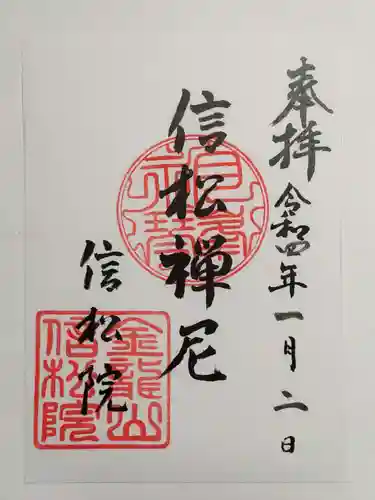 奉拝
令和四年一月二日
信松禅尼
信松院
金龍山
信松院